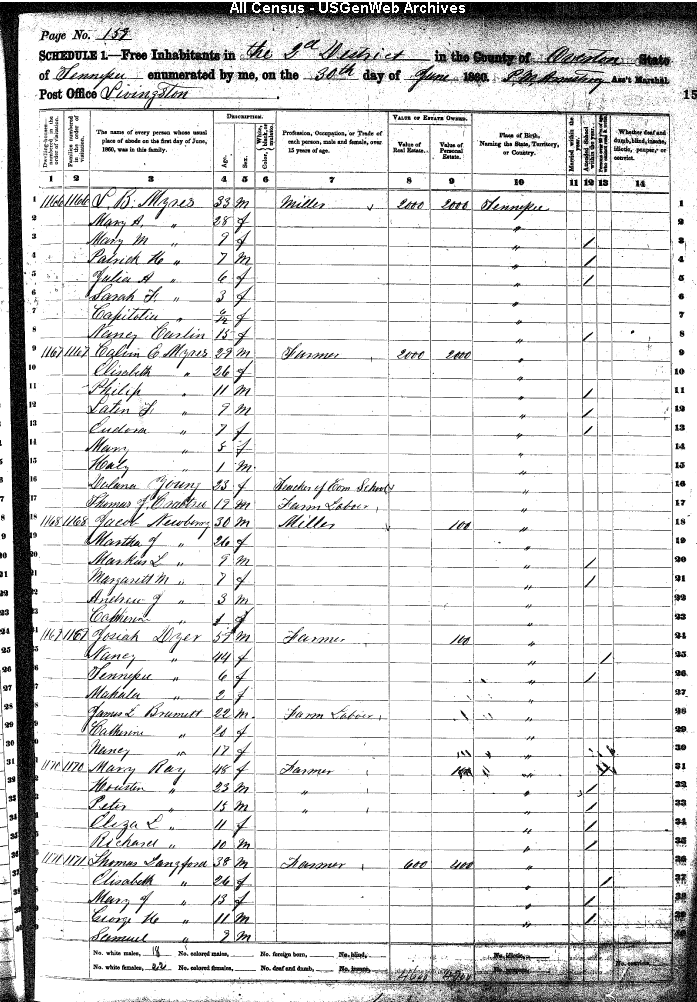 All Census - USGenWeb Archives
Page No. 159
SCHEDULE 1.—Free Inhabitants in the 2d District in the County of Overton State
of Tennessee enumerated by me, on the 30th day of June 1860. Ass't Marshal.
Post Office Livingston 15
DESCRIPTION. VALUE OF ESTATE OWNED.
Dwelling-houses numbered in the order of visitation. Families numbered in the order of visitation. The name of every person whose usual place of abode on the first day of June, 1860, was in this family. Age. Sex. Color, Profession, Occupation, or Trade of each person, male and female, over 15 years of age. Value of Real Estate. Value of Personal Estate. Place of Birth, Naming the State, Territory, or Country. Married within the year. Attended School within the year. Whether deaf and dumb, blind, insane, idiotic, pauper, or convict.
1 2 3 4 5 6 7 8 9 10 11 12 13 14
1 1166 1166 S B Myres 33 m Miller 2000 2000 Tennessee 1
2 Mary A. " 28 f " 2
3 Mary M " 9 f " / 3
4 Patrick H " 7 m " / 4
5 Julia A " 6 f " / 5
6 Sarah F. " 3 f " 6
7 " f " 7
8 Nancy 15 f " / 8
9 1167 1167 Calvin C Myres 29 m Farmer 2000 2000 " 9
10 Elisabeth " 26 f " 10
11 Philip " 11 m " / 11
12 " 9 m " / 12
13 Eudora " 7 f " / 13
14 Mary " 5 f " 14
15 " 1 m " 15
16 Young 23 f Teacher of Com School " 16
17 Thomas J. Crabtree 19 m Farm Labour " 17
18 1168 1168 Jacob Newberry 30 m Miller 100 " 18
19 Martha J " 26 f " 19
20 Markus L " 9 m " / 20
21 Margarett M " 7 f " / 21
22 Andrew J " 3 m " 22
23 Catherine " f " 23
24 1169 1169 Josiah Dyer 57 m Farmer 100 " 24
25 Nancy " 44 f " / 25
26 Tennessee " 6 f " / 26
27 Mahala " 2 f " 27
28 James L Brumett 22 m Farm Labour " 28
29 Catherine " f " 29
30 Nancy " 17 f " 30
31 1170 1170 Mary Ray 48 f Farmer 100 " 31
32 Houston " 23 m " " / 32
33 Peter " 15 m " " / 33
34 Eliza L " 11 f " / 34
35 Richard " 10 m " / 35
36 1171 1171 Thomas Langford 38 m Farmer 600 400 " 36
37 Elisabeth " 26 f " / 37
38 Mary J " 13 f " / 38
39 George H " 11 m " / 39
40 Samuel " 9 m 40
No. white males, 18 No. colored males, No. foreign born, No. blind, No. idiotic,
No. white females, 22 No. colored females, No. deaf and dumb, No. insane, No. convicts,